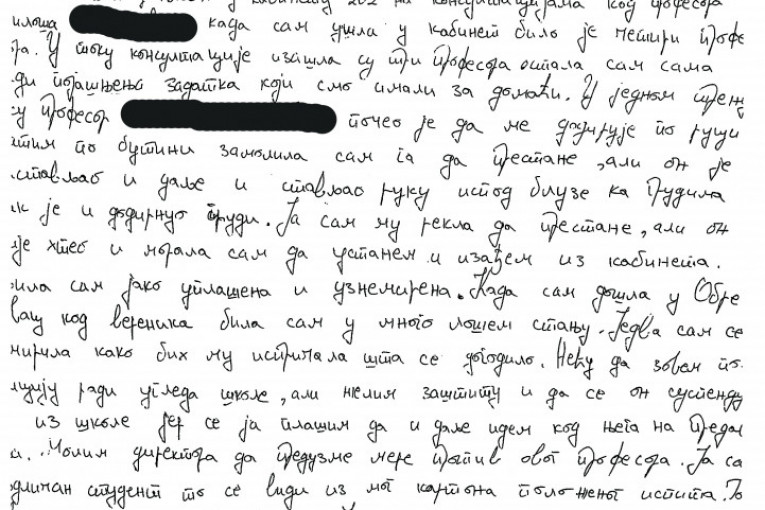 кабинету 202 на консултацијама код професора
илоша када сам ушла у кабинет било је четири профе
ра. У току консултације изашла су три професора остала сам сама
ди појашњења задатка који смо имали за домаћи. У једном трен
у професор почео је да ме додирује по руци
тим по бутини замолила сам га да престане, али он је
стављао и даље и стављао руку испод блузе ка грудима
к је и додирнуо груди. Ја сам му рекла да престане, али он
ије хтео и морала сам да устанем и изађем из кабинета.
ила сам јако уплашена и узнемирена. Када сам дошла у Обре
вац код вереника била сам у много лошем стању. Једва сам се
мирила како бих му испричала шта се догодило. Нећу да зовем по
лицију ради угледа школе, али желим заштиту и да се он суспенду
из школе јер се ја плашим да и даље идем код њега на предав
а. Молим директора да предузме мере против овог професора. Ја са
одличан студент то се види из мог картона положеног испита. То